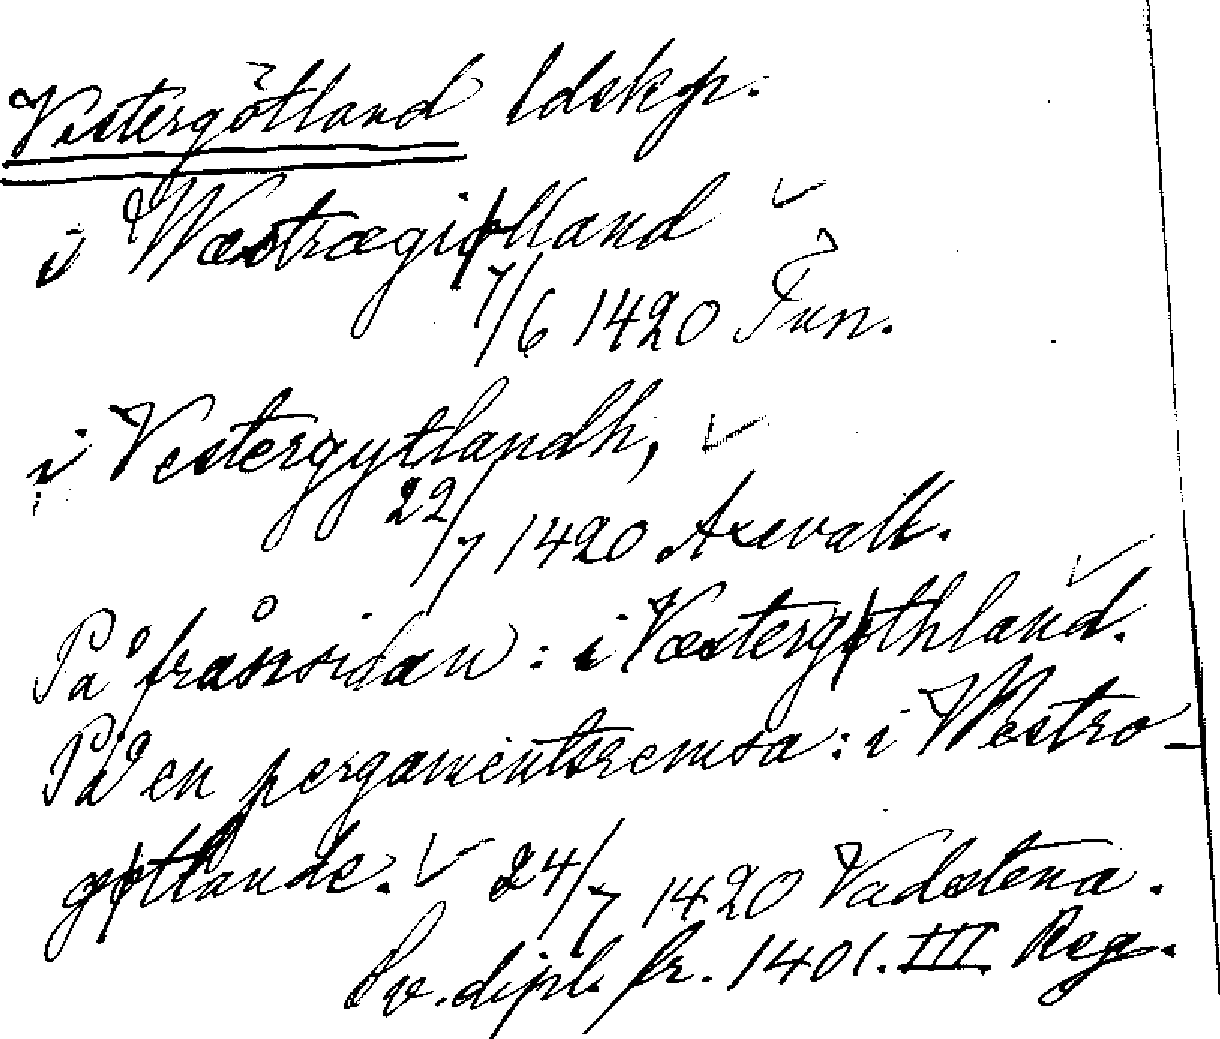 Vestergötland ldskp.
i Wæstrægiøtland
7/6 1420 Tun.
i Vestergytlandh,
22/7 1420 Axevall.
På frånsidan: i Væstergøthland.
På en pergamentsremsa: i Westro-
gøtlande. 24/7 1420 Vadstena.
Sv. dipl. fr. 1401. III Reg.